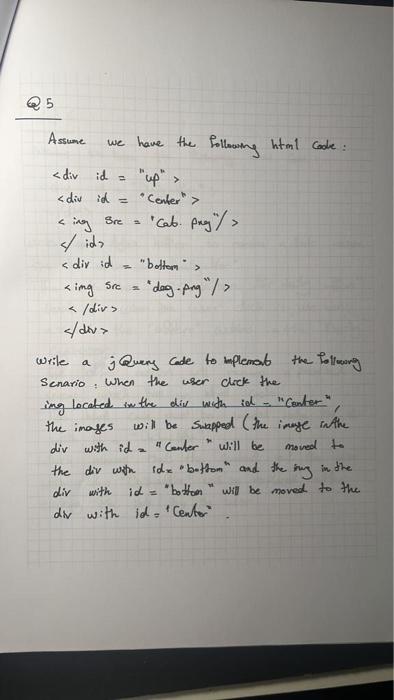 Q5
Assume we have the following html Code :
<div id = "up" >
<div id = "Center" >
< img Src = "Cat. png"/ >
</ id>
<div id = "bottom" >
<img Src = "dog.png"/ >
< /div >
</div>
Write a jQuery Code to implement the following
Senario : When the user click the
img located in the div with id = "Center",
the images will be Swapped (the image in the
div with id = "Center" will be moved to
the div with id= "bottom" and the img in the
div with id = "bottom" will be moved to the
div with id = "Center" .